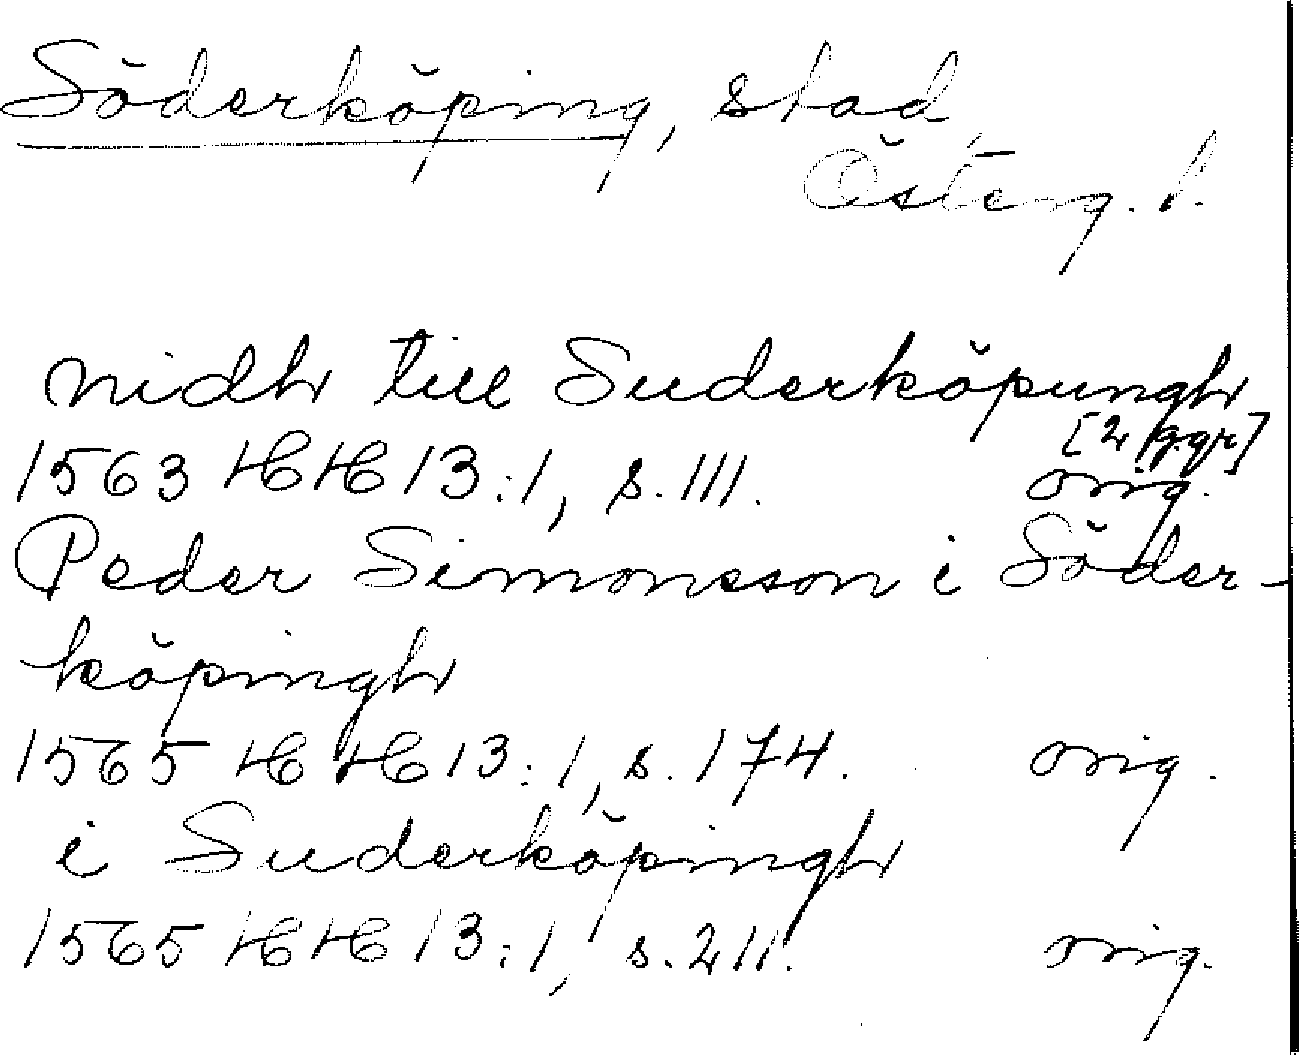 Söderköping, stad
Österg. l.
nidh till Suderköpungh
[2 ggr]
1563 HH 13:1, s. 111. orig.
Peder Simonsson i Söder-
köpingh
1565 HH 13:1, s. 174. orig.
i Suderköpingh
1565 HH 13:1, s. 211. orig.